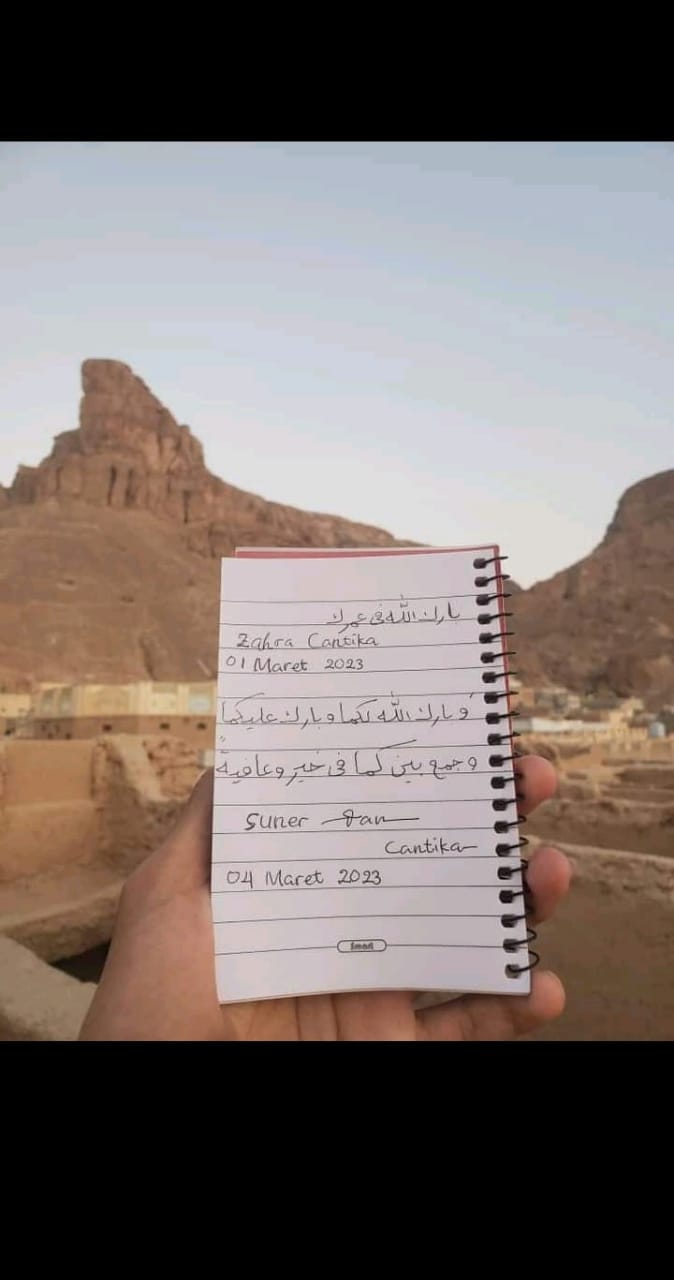 بارك الله فى عمرك
Zahra Cantika
01 Maret 2023
و بارك الله لكما و بارك عليكما
و جمع بين كما فى خير و عافية
Suner dan
Cantika
04 Maret 2023